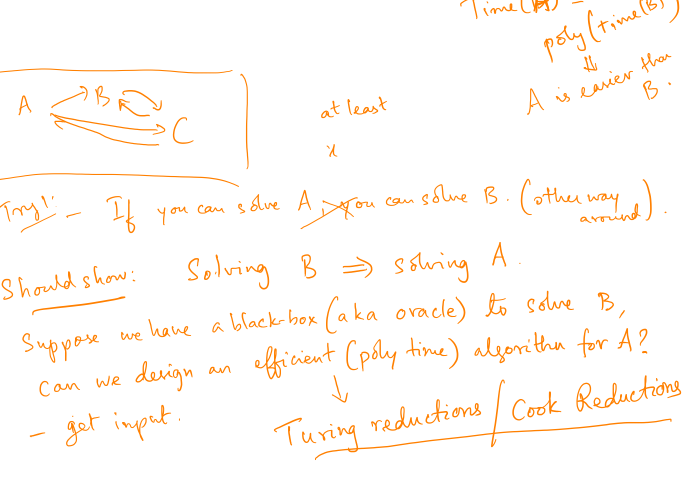 Time(A) =
poly(time(B))
⇓
A is easier than
B.
A B
C
at least
Try!! - If you can solve A, you can solve B. (other way
around).
Should show: Solving B ⇒ solving A.
Suppose we have a black-box (aka oracle) to solve B,
can we design an efficient (poly time) algorithm for A?
↓
- get input.
Turing reductions / Cook Reductions